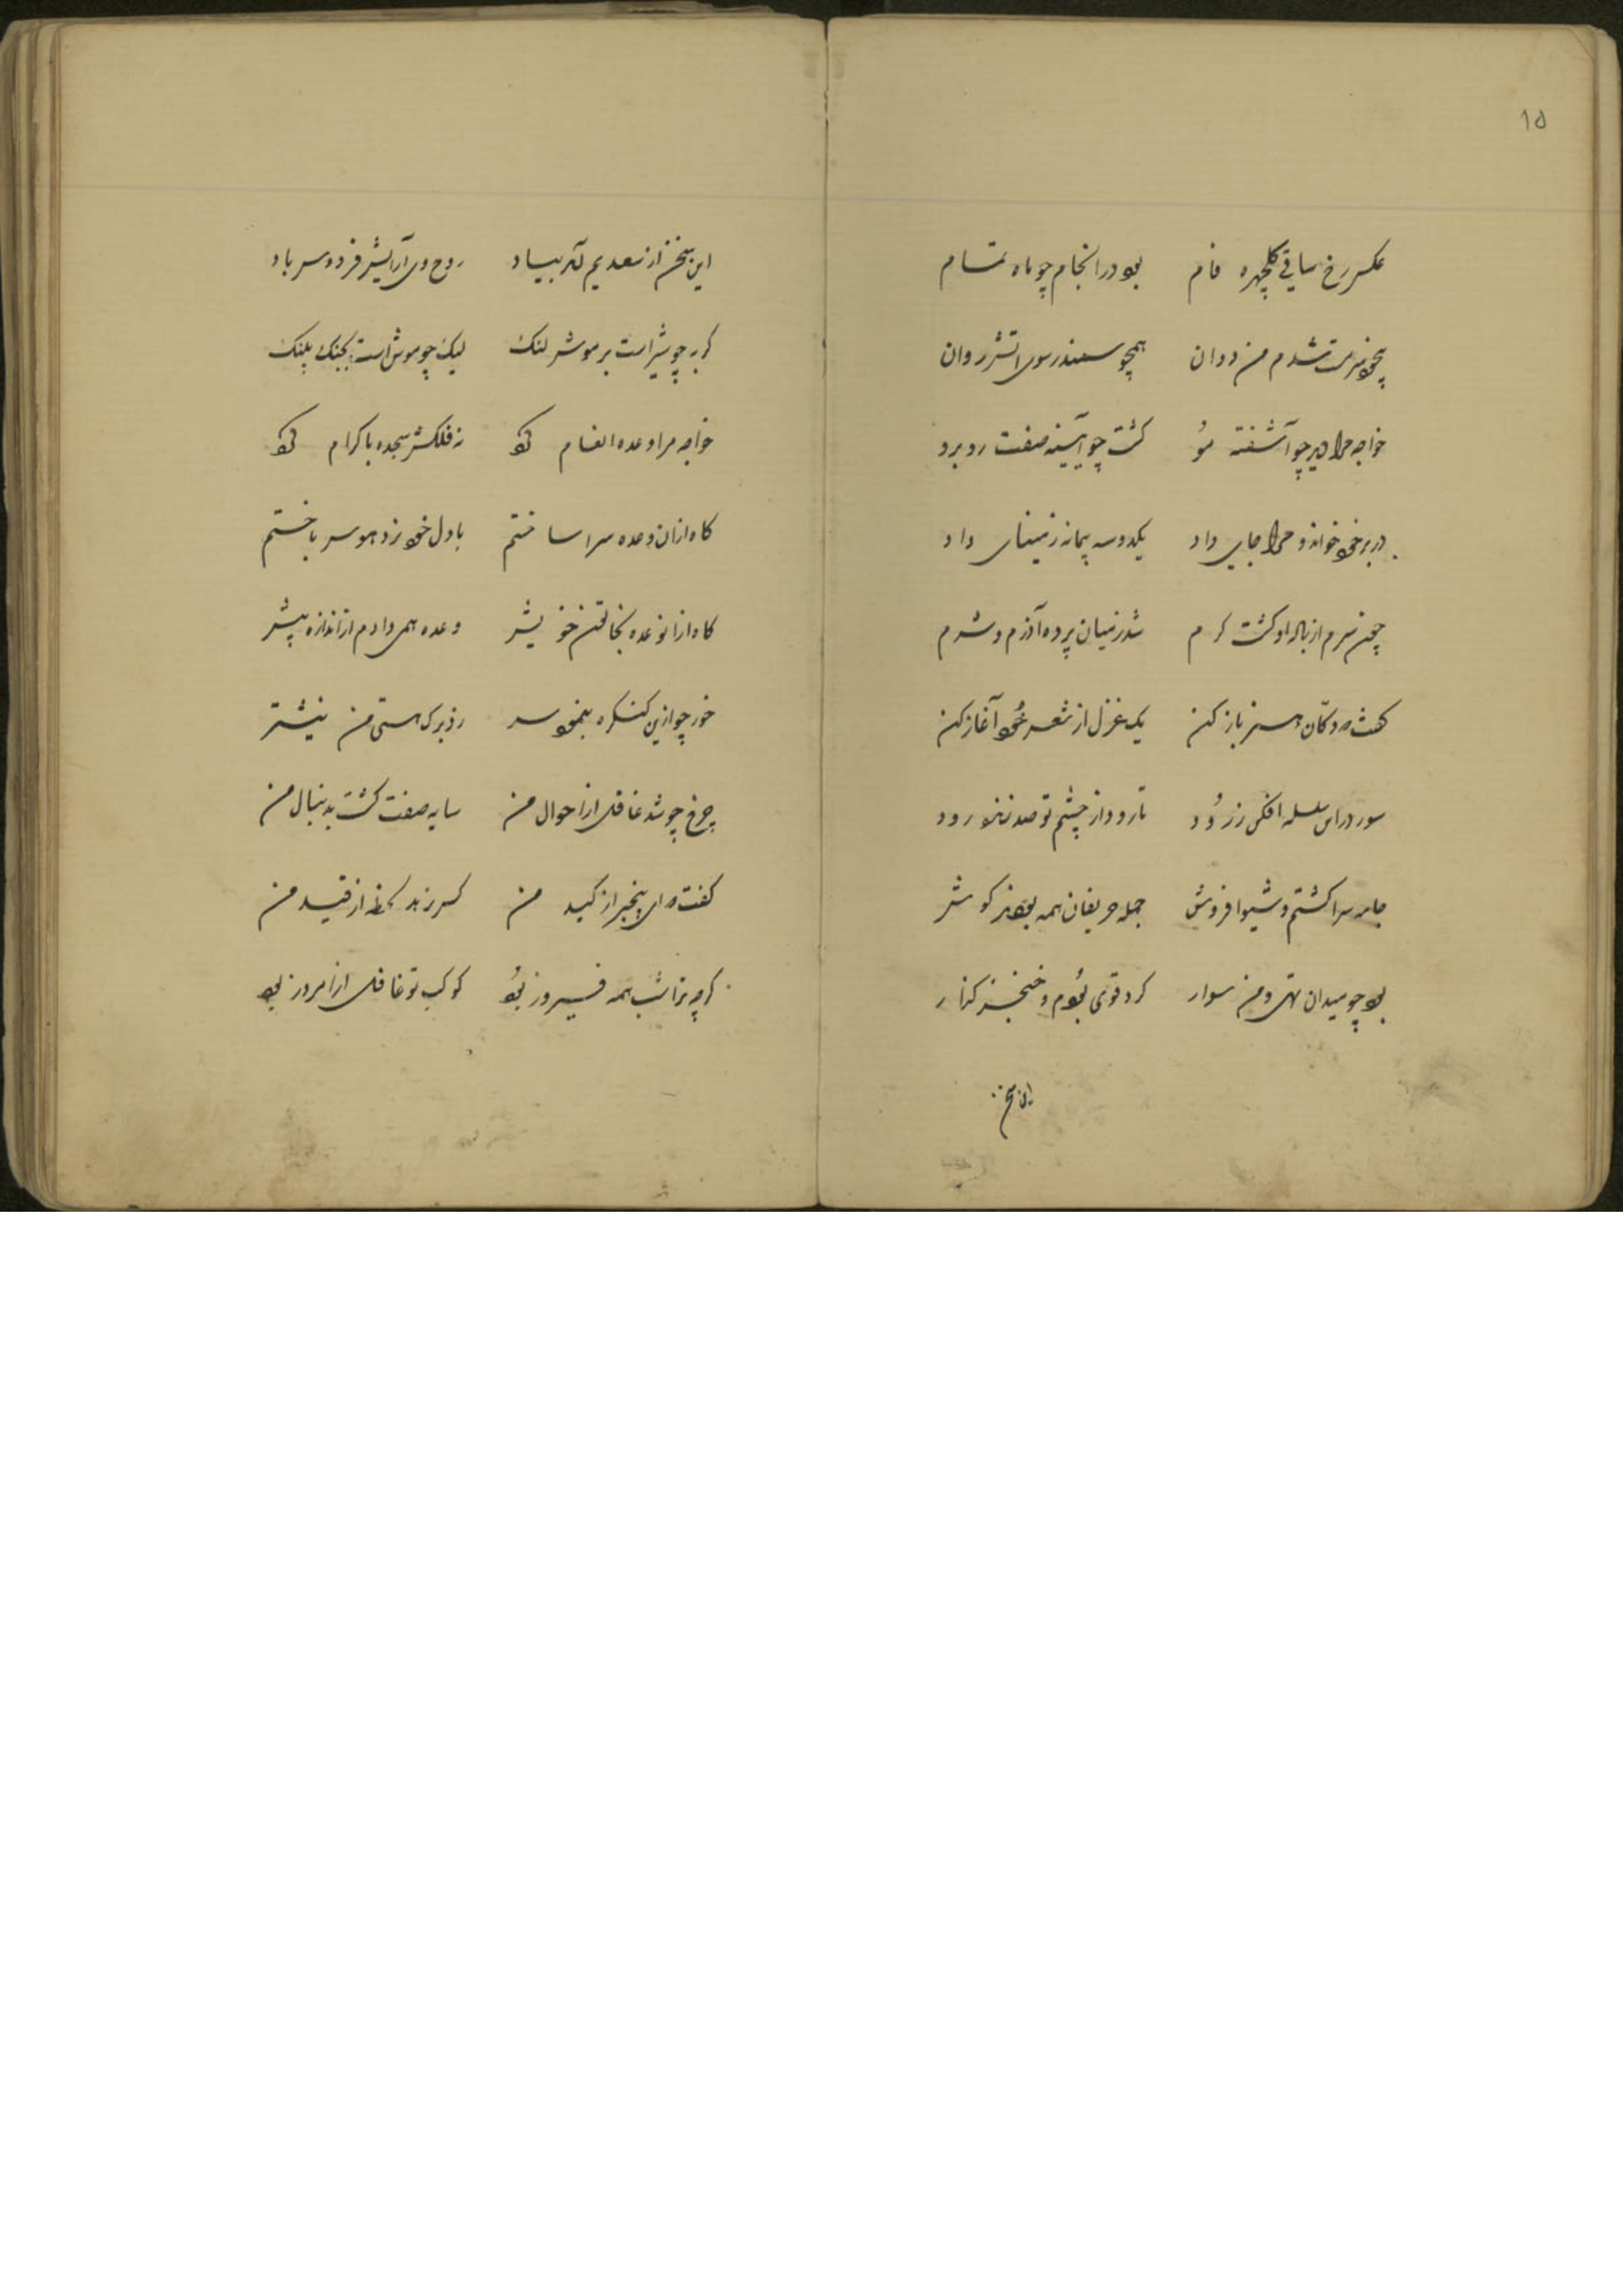 ۱۵
عکس رخ ساقی گلچهره فام بود در انجام چو ماه تمام
بیخود و سرمست شدم من دوان همچو سمندر سوی آتش روان
خواجه مرا دید چو آشفته مو گشت چو آیینه صفت روبرو
در بر خود خواند و مرا جای داد یکدو سه پیمانه ز مینای داد
چون سرم از باده او گشت گرم شد ز میان پرده آزرم و شرم
گفت که دکان هنر باز کن یک غزل از شعر خود آغاز کن
سور در این سلسله افکن ز رود تا رود از چشم تو صد زنده رود
جامه سرا گشتم و شیوا فروش جمله حریفان همه بودند گوش
بود چو میدان تهی و من سوار کرد قوی بودم و خنجر گذار
این سخن
این سخن از سعدیم آمد بیاد روح وی آرایش فردوس باد
گربه چو شیر است بر موش لنگ لیک چو موش است بجنگ پلنگ
خواجه مرا وعده انعام کرد نه فلکش سجده باکرام کرد
گاه از آن وعده سرا ساختم با دل خود نرد هوس باختم
گاه از آن وعده بخاقان خویش وعده همی دادم از اندازه بیش
خور چو ازین کنگره بنمود سر زد برگ هستی من نیشتر
چرخ چو شد غافل از احوال من سایه صفت گشت بدنبال من
گفت که ای بیخبر از کید من کس نرهد لحظه از قید من
گرچه ترا شب همه فیروز بود کوکب تو غافل از امروز بود